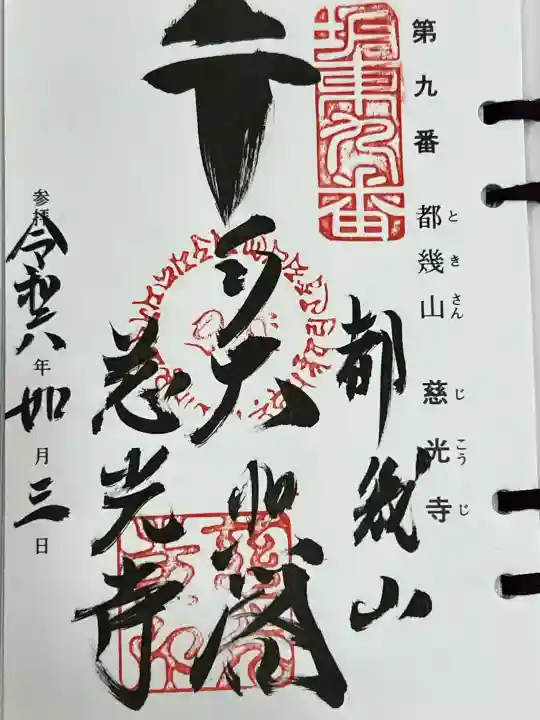 第九番 都幾山 慈光寺
とき さん じこうじ
坂東九番
都幾山
大悲閣
慈光寺
参拝 令和六年如月三日